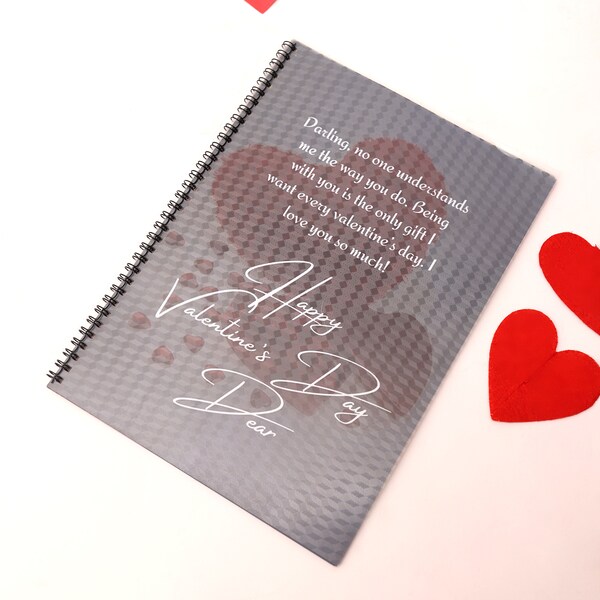 Darling, no one understands
me the way you do. Being
with you is the only gift I
want every valentine's day. I
love you so much!
Happy
Valentine's Day
Dear